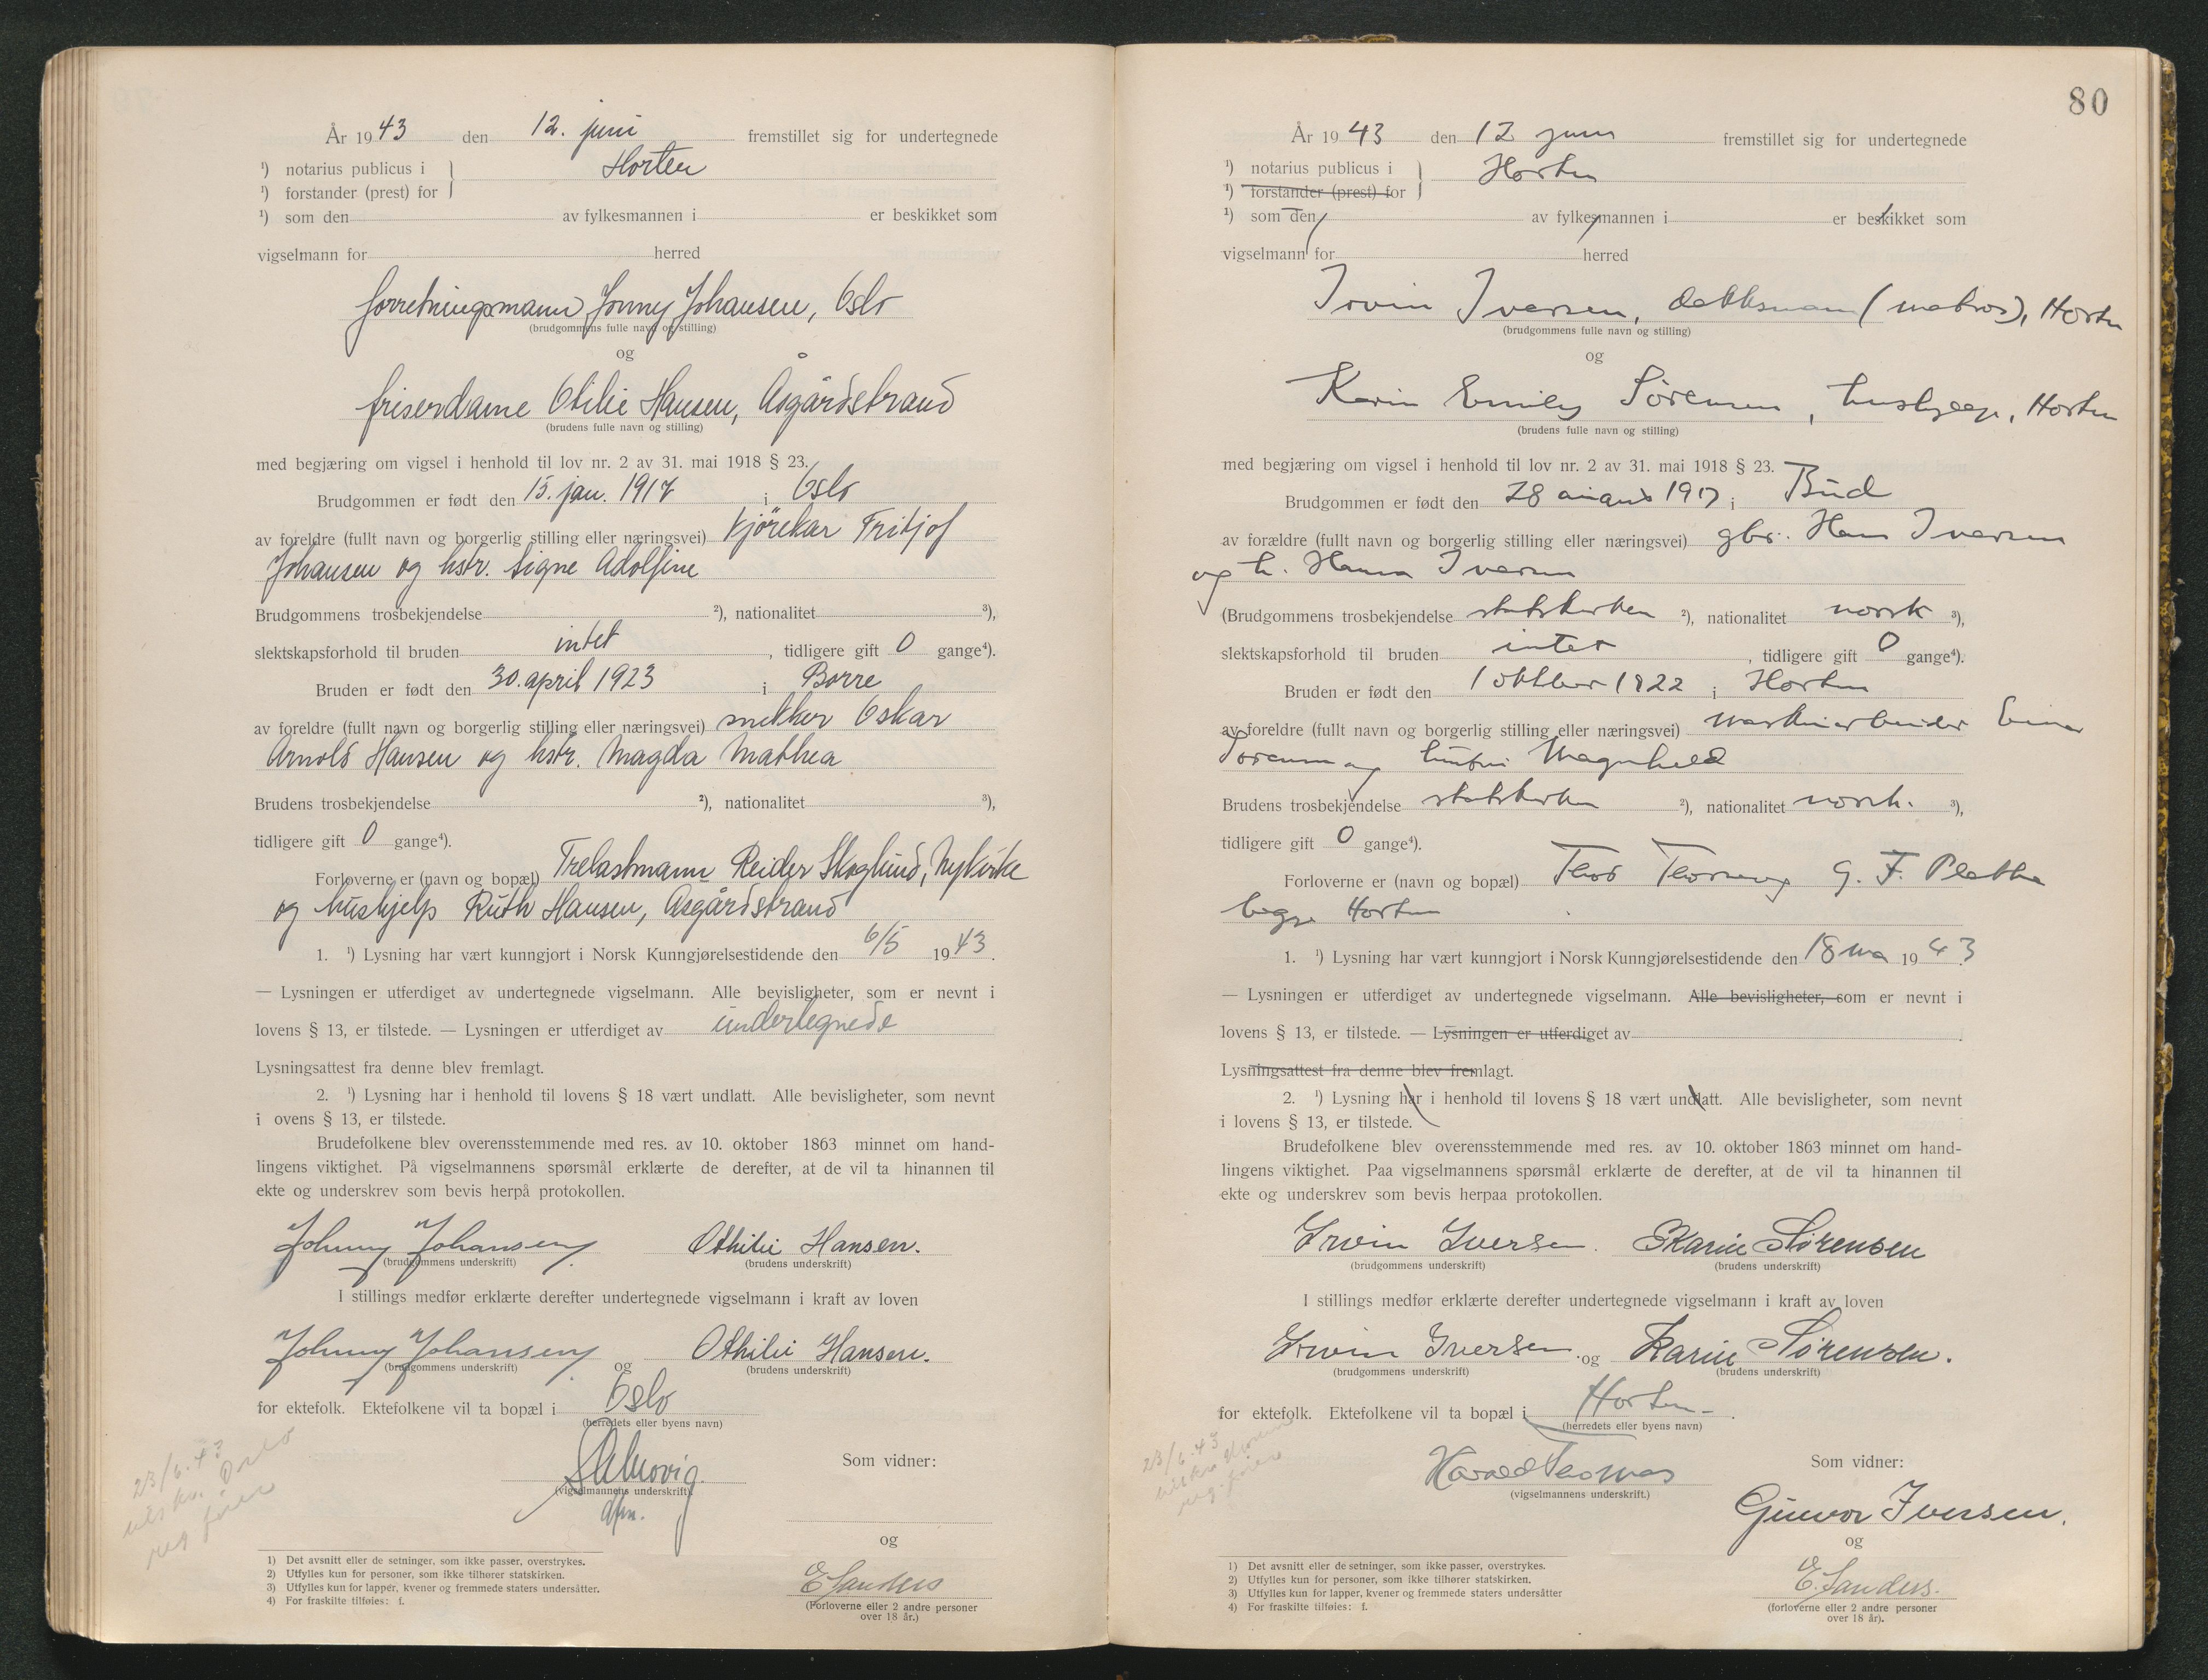 År 1943 den 12. juni fremstillet sig for undertegnede
¹) notarius publicus i } Horten
¹) forstander (prest) for
¹) som den av fylkesmannen i er beskikket som
vigselmann for herred
forretningsmann Jonny Johansen, Oslo
(brudgommens fulle navn og stilling)
og
friserdame Otilie Hansen, Åsgårdstrand
(brudens fulle navn og stilling)
med begjæring om vigsel i henhold til lov nr. 2 av 31. mai 1918 § 23.
Brudgommen er født den 15. jan. 1917 i Oslo
av foreldre (fullt navn og borgerlig stilling eller næringsvei) kjørekar Fritjof
Johansen og hstr. Signe Adolfine
Brudgommens trosbekjendelse ²), nationalitet ³),
slektskapsforhold til bruden intet, tidligere gift 0 gange⁴).
Bruden er født den 30. april 1923 i Borre
av foreldre (fullt navn og borgerlig stilling eller næringsvei) snekker Oskar
Arnold Hansen og hstr. Magda Mathea
Brudens trosbekjendelse ²), nationalitet ³),
tidligere gift 0 gange⁴).
Forloverne er (navn og bopæl) Trelastmann Reider Skoglund, Nykirke
og hushjelp Ruth Hansen, Åsgårdstrand
1. ¹) Lysning har vært kunngjort i Norsk Kunngjørelsestidende den 6/5 1943.
— Lysningen er utferdiget av undertegnede vigselmann. Alle bevisligheter, som er nevnt i
lovens § 13, er tilstede. — Lysningen er utferdiget av undertegnede
Lysningsattest fra denne blev fremlagt.
2. ¹) Lysning har i henhold til lovens § 18 vært undlatt. Alle bevisligheter, som nevnt
i ovens § 13, er tilstede.
Brudefolkene blev overensstemmende med res. av 10. oktober 1863 minnet om hand-
lingens viktighet. På vigselmannens spørsmål erklærte de derefter, at de vil ta hinannen til
ekte og underskrev som bevis herpå protokollen.
Johnny Johansen. Othilie Hansen.
(brudgommens underskrift) (brudens underskrift)
I stillings medfør erklærte derefter undertegnede vigselmann i kraft av loven
Johnny Johansen. og Othilie Hansen.
(brudgommens underskrift) (brudens underskrift)
for ektefolk. Ektefolkene vil ta bopæl i Oslo
(herredets eller byens navn)
Som vidner:
(vigselmannens underskrift).
dfm.
23/6.43
Oslo
og
E Sanders
(Forloverne eller 2 andre personer
over 18 år.)
1) Det avsnitt eller de setninger, som ikke passer, overstrykes.
2) Utfylles kun for personer, som ikke tilhører statskirken.
3) Utfylles kun for lapper, kvener og fremmede staters undersåtter.
4) For fraskilte tilføies: f.
80
År 1943 den 12 juni fremstillet sig for undertegnede
¹) notarius publicus i } Horten
¹) forstander (prest) for
¹) som den av fylkesmannen i er beskikket som
vigselmann for herred
Irvin Iversen, dekksmann (matros), Horten
(brudgommens fulle navn og stilling)
og
Karin Emily Sørensen, hushjelp, Horten
(brudens fulle navn og stilling)
med begjæring om vigsel i henhold til lov nr. 2 av 31. mai 1918 § 23.
Brudgommen er født den 28 1917 i Bud
av forældre (fullt navn og borgerlig stilling eller næringsvei) gbr. Hans Iversen
og h. Hanna Iversen
(Brudgommens trosbekjendelse statskirken ²), nationalitet norsk ³),
slektskapsforhold til bruden intet, tidligere gift 0 gange⁴).
Bruden er født den 1 oktober 1922 i Horten
av foreldre (fullt navn og borgerlig stilling eller næringsvei) maskinarbeider Einar
Sørensen og hustru Magnhild
Brudens trosbekjendelse statskirken ²), nationalitet norsk. ³),
tidligere gift 0 gange⁴).
Forloverne er (navn og bopæl) G. F.
begge Horten
1. ¹) Lysning har vært kunngjort i Norsk Kunngjørelsestidende den 18 mai 1943.
— Lysningen er utferdiget av undertegnede vigselmann. Alle bevisligheter, som er nevnt i
lovens § 13, er tilstede. — Lysningen er utferdiget av
Lysningsattest fra denne blev fremlagt.
2. ¹) Lysning har i henhold til lovens § 18 vært undlatt. Alle bevisligheter, som nevnt
i lovens § 13, er tilstede.
Brudefolkene blev overensstemmende med res. av 10. oktober 1863 minnet om hand-
lingens viktighet. Paa vigselmannens spørsmål erklærte de derefter, at de vil ta hinannen til
ekte og underskrev som bevis herpaa protokollen.
Irvin Iversen. Karin Sørensen
(brudgommens underskrift) (brudens underskrift)
I stillings medfør erklærte derefter undertegnede vigselmann i kraft av loven
Irvin Iversen og Karin Sørensen.
(brudgommens underskrift) (brudens underskrift)
for ektefolk. Ektefolkene vil ta bopæl i Horten.
(herredets eller byens navn)
Harald Thomas
Som vidner:
(vigselmannens underskrift.)
23/6.43
Gunvor Iversen.
og
E. Sanders.
(forloverne eller 2 andre personer
over 18 år).
1) Det avsnitt eller de setninger, som ikke passer, overstrykes.
2) Utfylles kun for personer, som ikke tilhører statskirken.
3) Utfylles kun for lapper, kvener og fremmede staters undersåtter
4) For fraskilte tilføies: f.